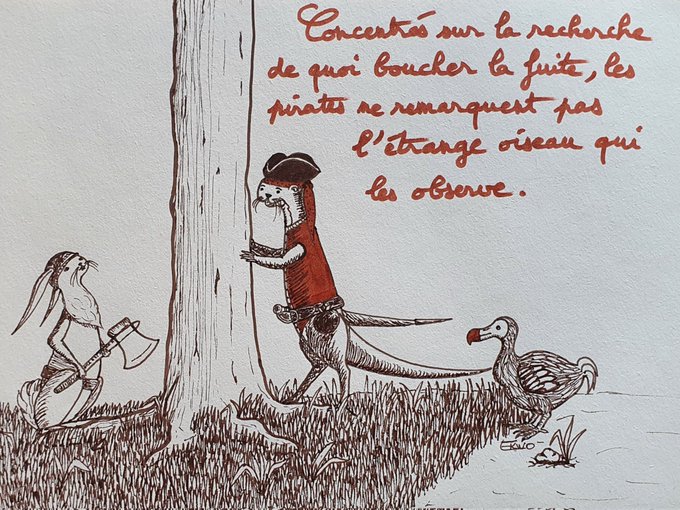 Concentrés sur la recherche
de quoi boucher la fuite, les
pirates ne remarquent pas
l'étrange oiseau qui
les observe.